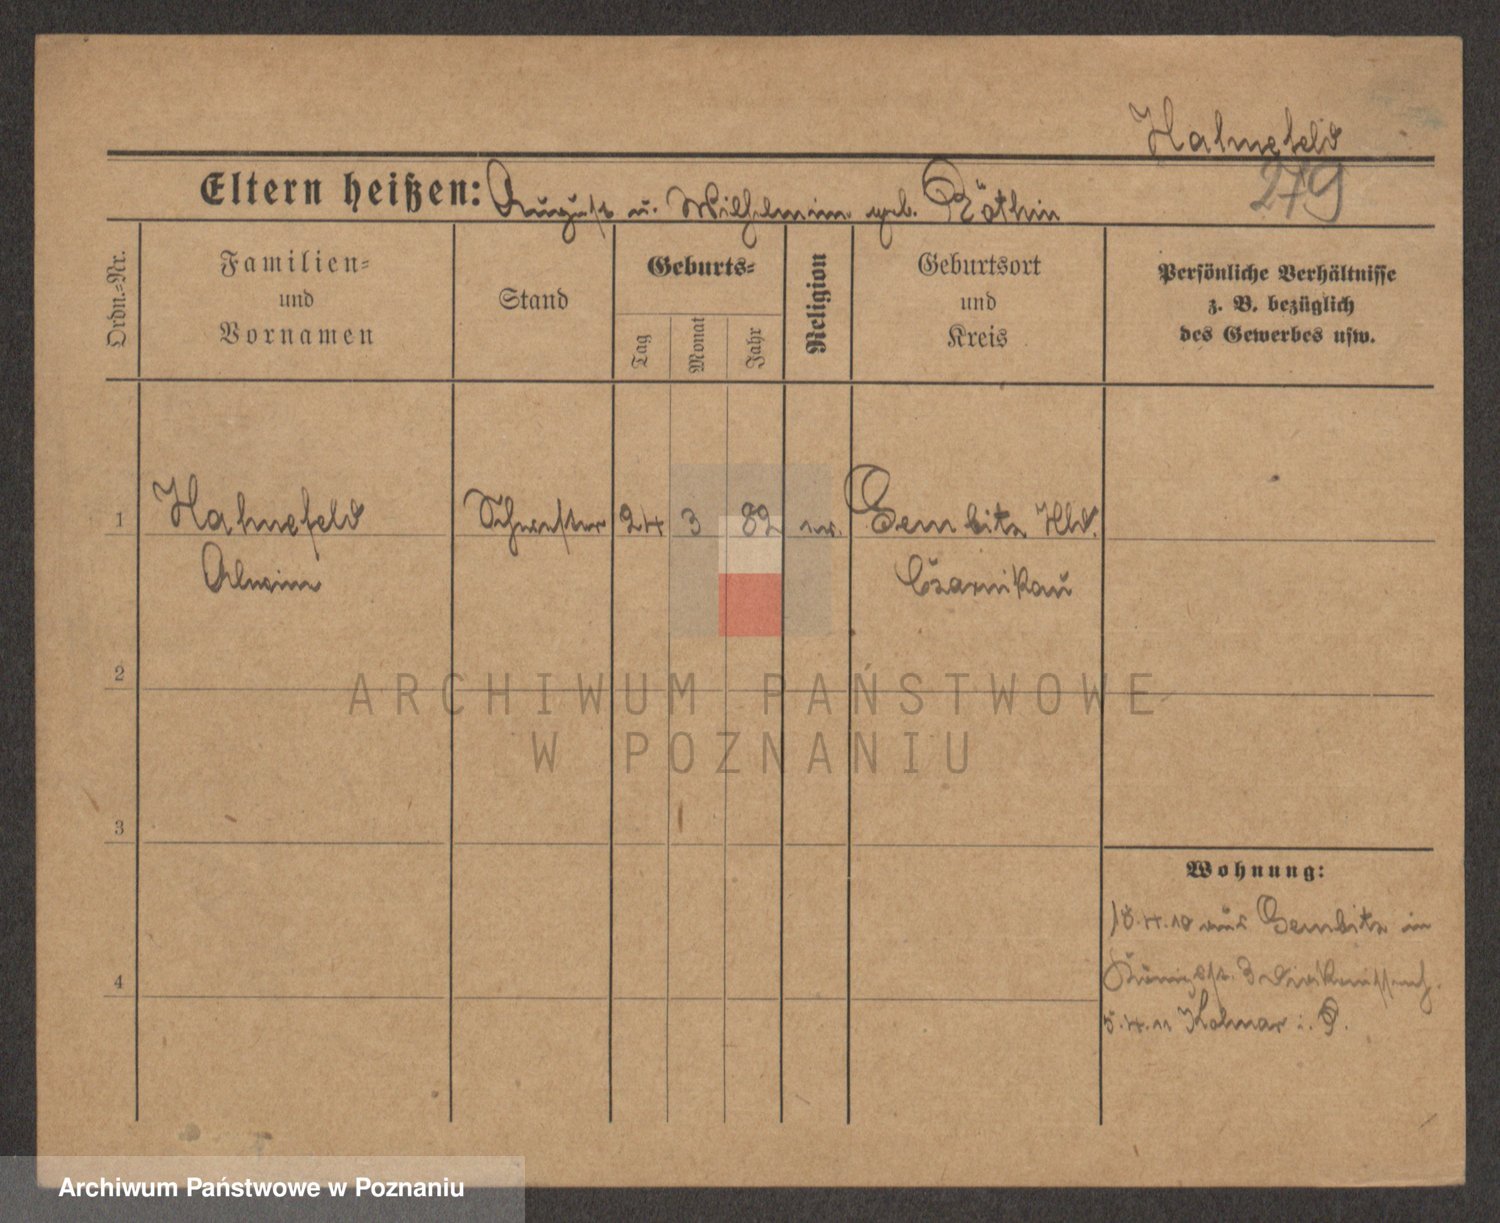 Hahnefeld
279
Eltern heißen: August u. Wilhelmine geb. Röthin
Ordn.-Nr.
Familien-
und
Vornamen
Stand
Geburts-
Tag
Monat
Jahr
Religion
Geburtsort
und
Kreis
Persönliche Verhältnisse
z. B. bezüglich
des Gewerbes usw.
1 Hahnefeld Schwester 24 3 82 ev. Gembitz Hld.
Alwine Czarnikau
2
ARCHIWUM PAŃSTWOWE
W POZNANIU
3
Wohnung:
18.4.10 aus Gembitz in
Königst. 3 Diakonissenh.
4
5.4.11 Kolmar i. P.
Archiwum Państwowe w Poznaniu